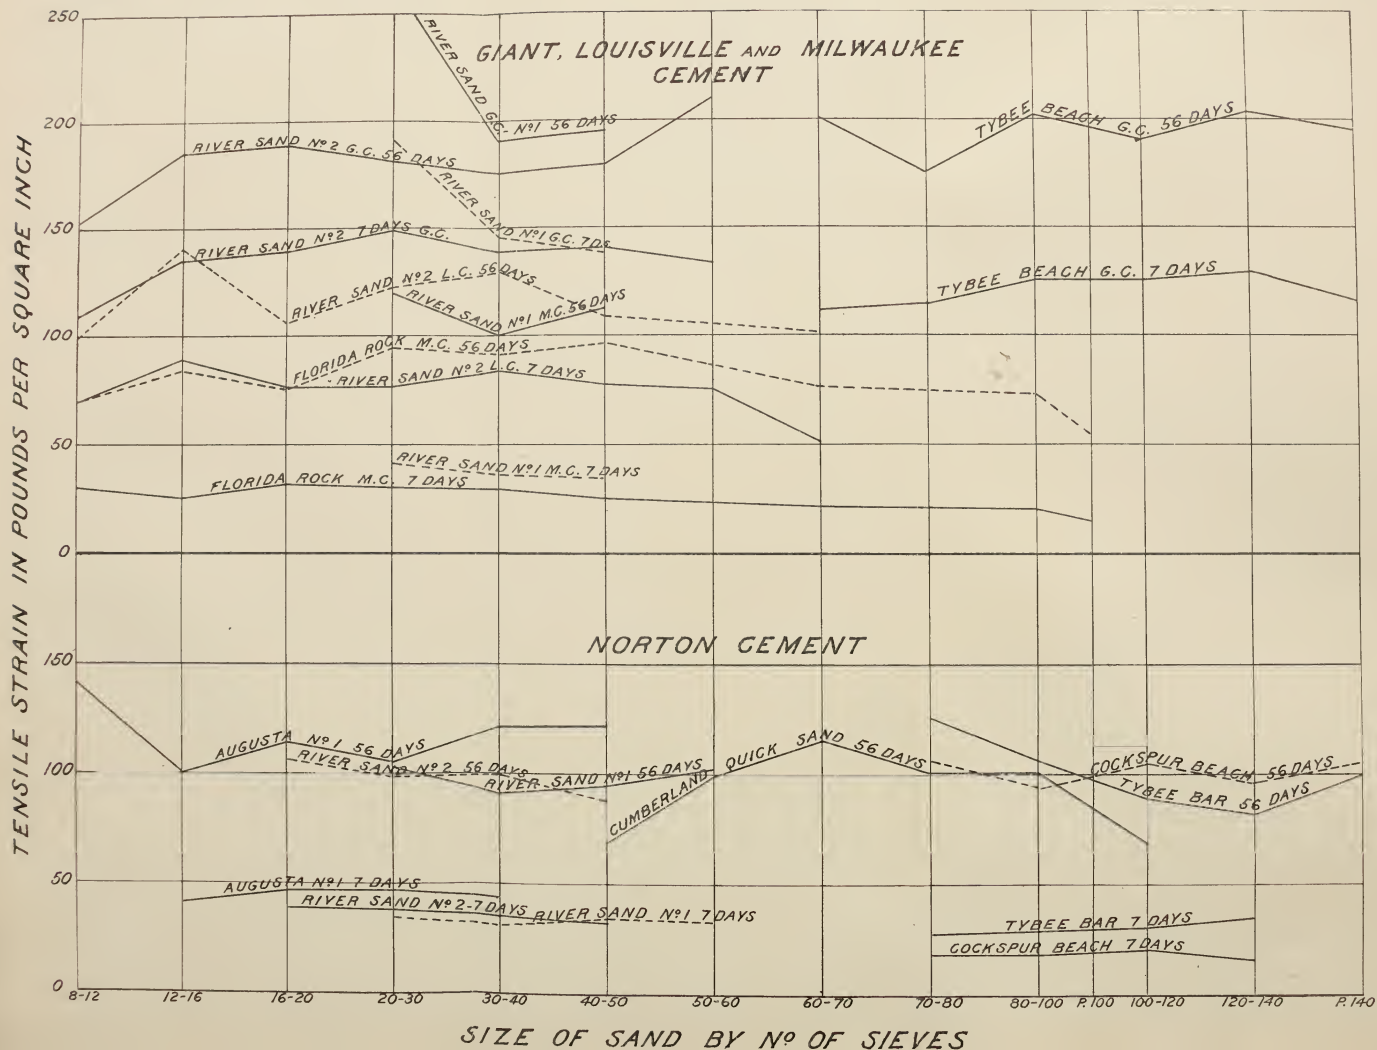 TENSILE STRAIN IN POUNDS PER SQUARE INCH
250
200
150
100
50
0
GIANT, LOUISVILLE AND MILWAUKEE
CEMENT
RIVER SAND G.C.- Nº1 56 DAYS
TYBEE BEACH G.C. 56 DAYS
RIVER SAND Nº2 G.C. 56 DAYS
RIVER SAND Nº1 G.C. 7 DS
RIVER SAND Nº2 7 DAYS G.C.
TYBEE BEACH G.C. 7 DAYS
RIVER SAND Nº2 L.C. 56 DAYS
RIVER SAND Nº1 M.C. 56 DAYS
FLORIDA ROCK M.C. 56 DAYS
RIVER SAND Nº2 L.C. 7 DAYS
RIVER SAND Nº1 M.C. 7 DAYS
FLORIDA ROCK M.C. 7 DAYS
NORTON CEMENT
150
100
50
0
AUGUSTA Nº1 56 DAYS
RIVER SAND Nº2 56 DAYS
RIVER SAND Nº1 56 DAYS
CUMBERLAND QUICK SAND 56 DAYS
COCKSPUR BEACH 56 DAYS
TYBEE BAR 56 DAYS
AUGUSTA Nº1 7 DAYS
RIVER SAND Nº2-7 DAYS
RIVER SAND Nº1 7 DAYS
TYBEE BAR 7 DAYS
COCKSPUR BEACH 7 DAYS
8-12 12-16 16-20 20-30 30-40 40-50 50-60 60-70 70-80 80-100 P.100 100-120 120-140 P.140
SIZE OF SAND BY Nº OF SIEVES